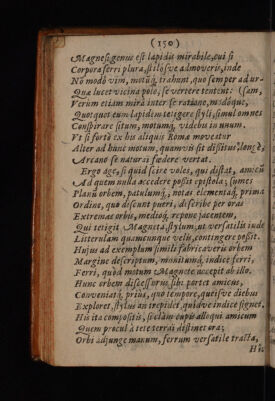 (150)
Magnesi genus est lapidis mirabile, cui si
Corpora ferri plura, stilosve admoveris, inde
Non modò vim, motumq́, trahunt, quo semper ad ursam,
Quæ lucet vicina polo, se vertere tentent:
Verum etiam mira inter se ratione, modoque,
Quotquot eum lapidem tetigere styli, simul omnes
Conspirare situm, motumq́, videbis in unum.
Ut si fortè ex his aliquis Romæ moveatur
Alter ad hunc motum, quamvis sit dissitus longè,
Arcano se naturai fœdere vertat.
Ergo age, si quid scire voles, qui distat, amicum
Ad quem nulla accedere possit epistola; sumes
Planum orbem, patulumq́, notas elementaq́, prima
Ordine, quo discunt pueri, describe per oras
Extremas orbis, medioq́, repone jacentem,
Qui tetigit Magneta, stylum, ut versatilis inde
Litterulam quamcunque velis, contingere possit.
Hujus ad exemplum simili fabricaveris orbem
Margine descriptum, munitumq́, indice ferri,
Ferri, quod motum Magnete accepit ab illo.
Hunc orbem discessurus sibi portet amicus,
Conveniatq́, prius, quo tempore, queisve diebus
Exploret, stylus an trepidet, quidve indice signet.
His ita compositis, si clàm cupis alloqui amicum
Quem procul à tete terrai distinet ora;
Orbi adjunge manum, ferrum versatile tracta,